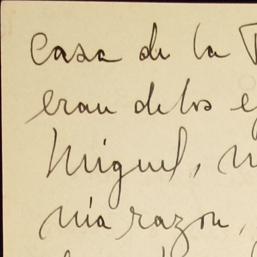 Casa de la
eran de los
Miguel,
mia razon,